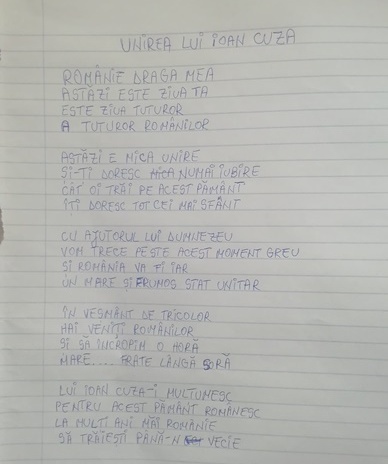 UNIREA LUI IOAN CUZA
ROMÂNIE DRAGA MEA
ASTĂZI ESTE ZIUA TA
ESTE ZIUA TUTUROR
A TUTUROR ROMÂNILOR
ASTĂZI E MICA UNIRE
ȘI-TI DORESC NUMAI IUBIRE
CÂT OI TRĂI PE ACEST PĂMÂNT
ÎȚI DORESC TOT CEI MAI SFÂNT
CU AJUTORUL LUI DUMNEZEU
VOM TRECE PESTE ACEST MOMENT GREU
SI ROMÂNIA VA FI IAR
UN MARE ȘI FRUMOS STAT UNITAR
ÎN VESMÂNT DE TRICOLOR
HAI VENIȚI ROMÂNILOR
SI SĂ ÎNCROPIM O HORĂ
MARE.... FRATE LÂNGĂ SORĂ
LUI IOAN CUZA-I MULTUMESC
PENTRU ACEST PĂMÂNT ROMÂNESC
LA MULTI ANI MĂI ROMÂNIE
SĂ TRĂIESTI PÂNĂ-N VECIE